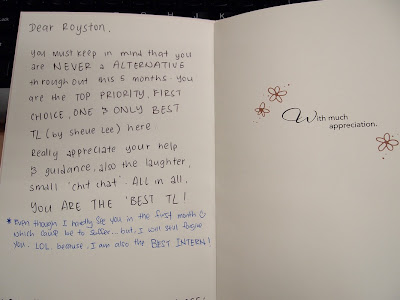 Dear Royston,
You must keep in mind that you
are NEVER a ALTERNATIVE
throughout this 5 months. You
are the TOP PRIORITY, FIRST
CHOICE, ONE & ONLY BEST
TL (by sheue Lee) here.
Really appreciate your help
& guidance, also the laughter,
small 'chit chat'. All in all,
YOU ARE THE 'BEST TL!
* Even though I hardly see you in the first month
which cause be to suffer.. but, I will still forgive
you. LOL. because, I am also the BEST INTERN!
With much
appreciation.